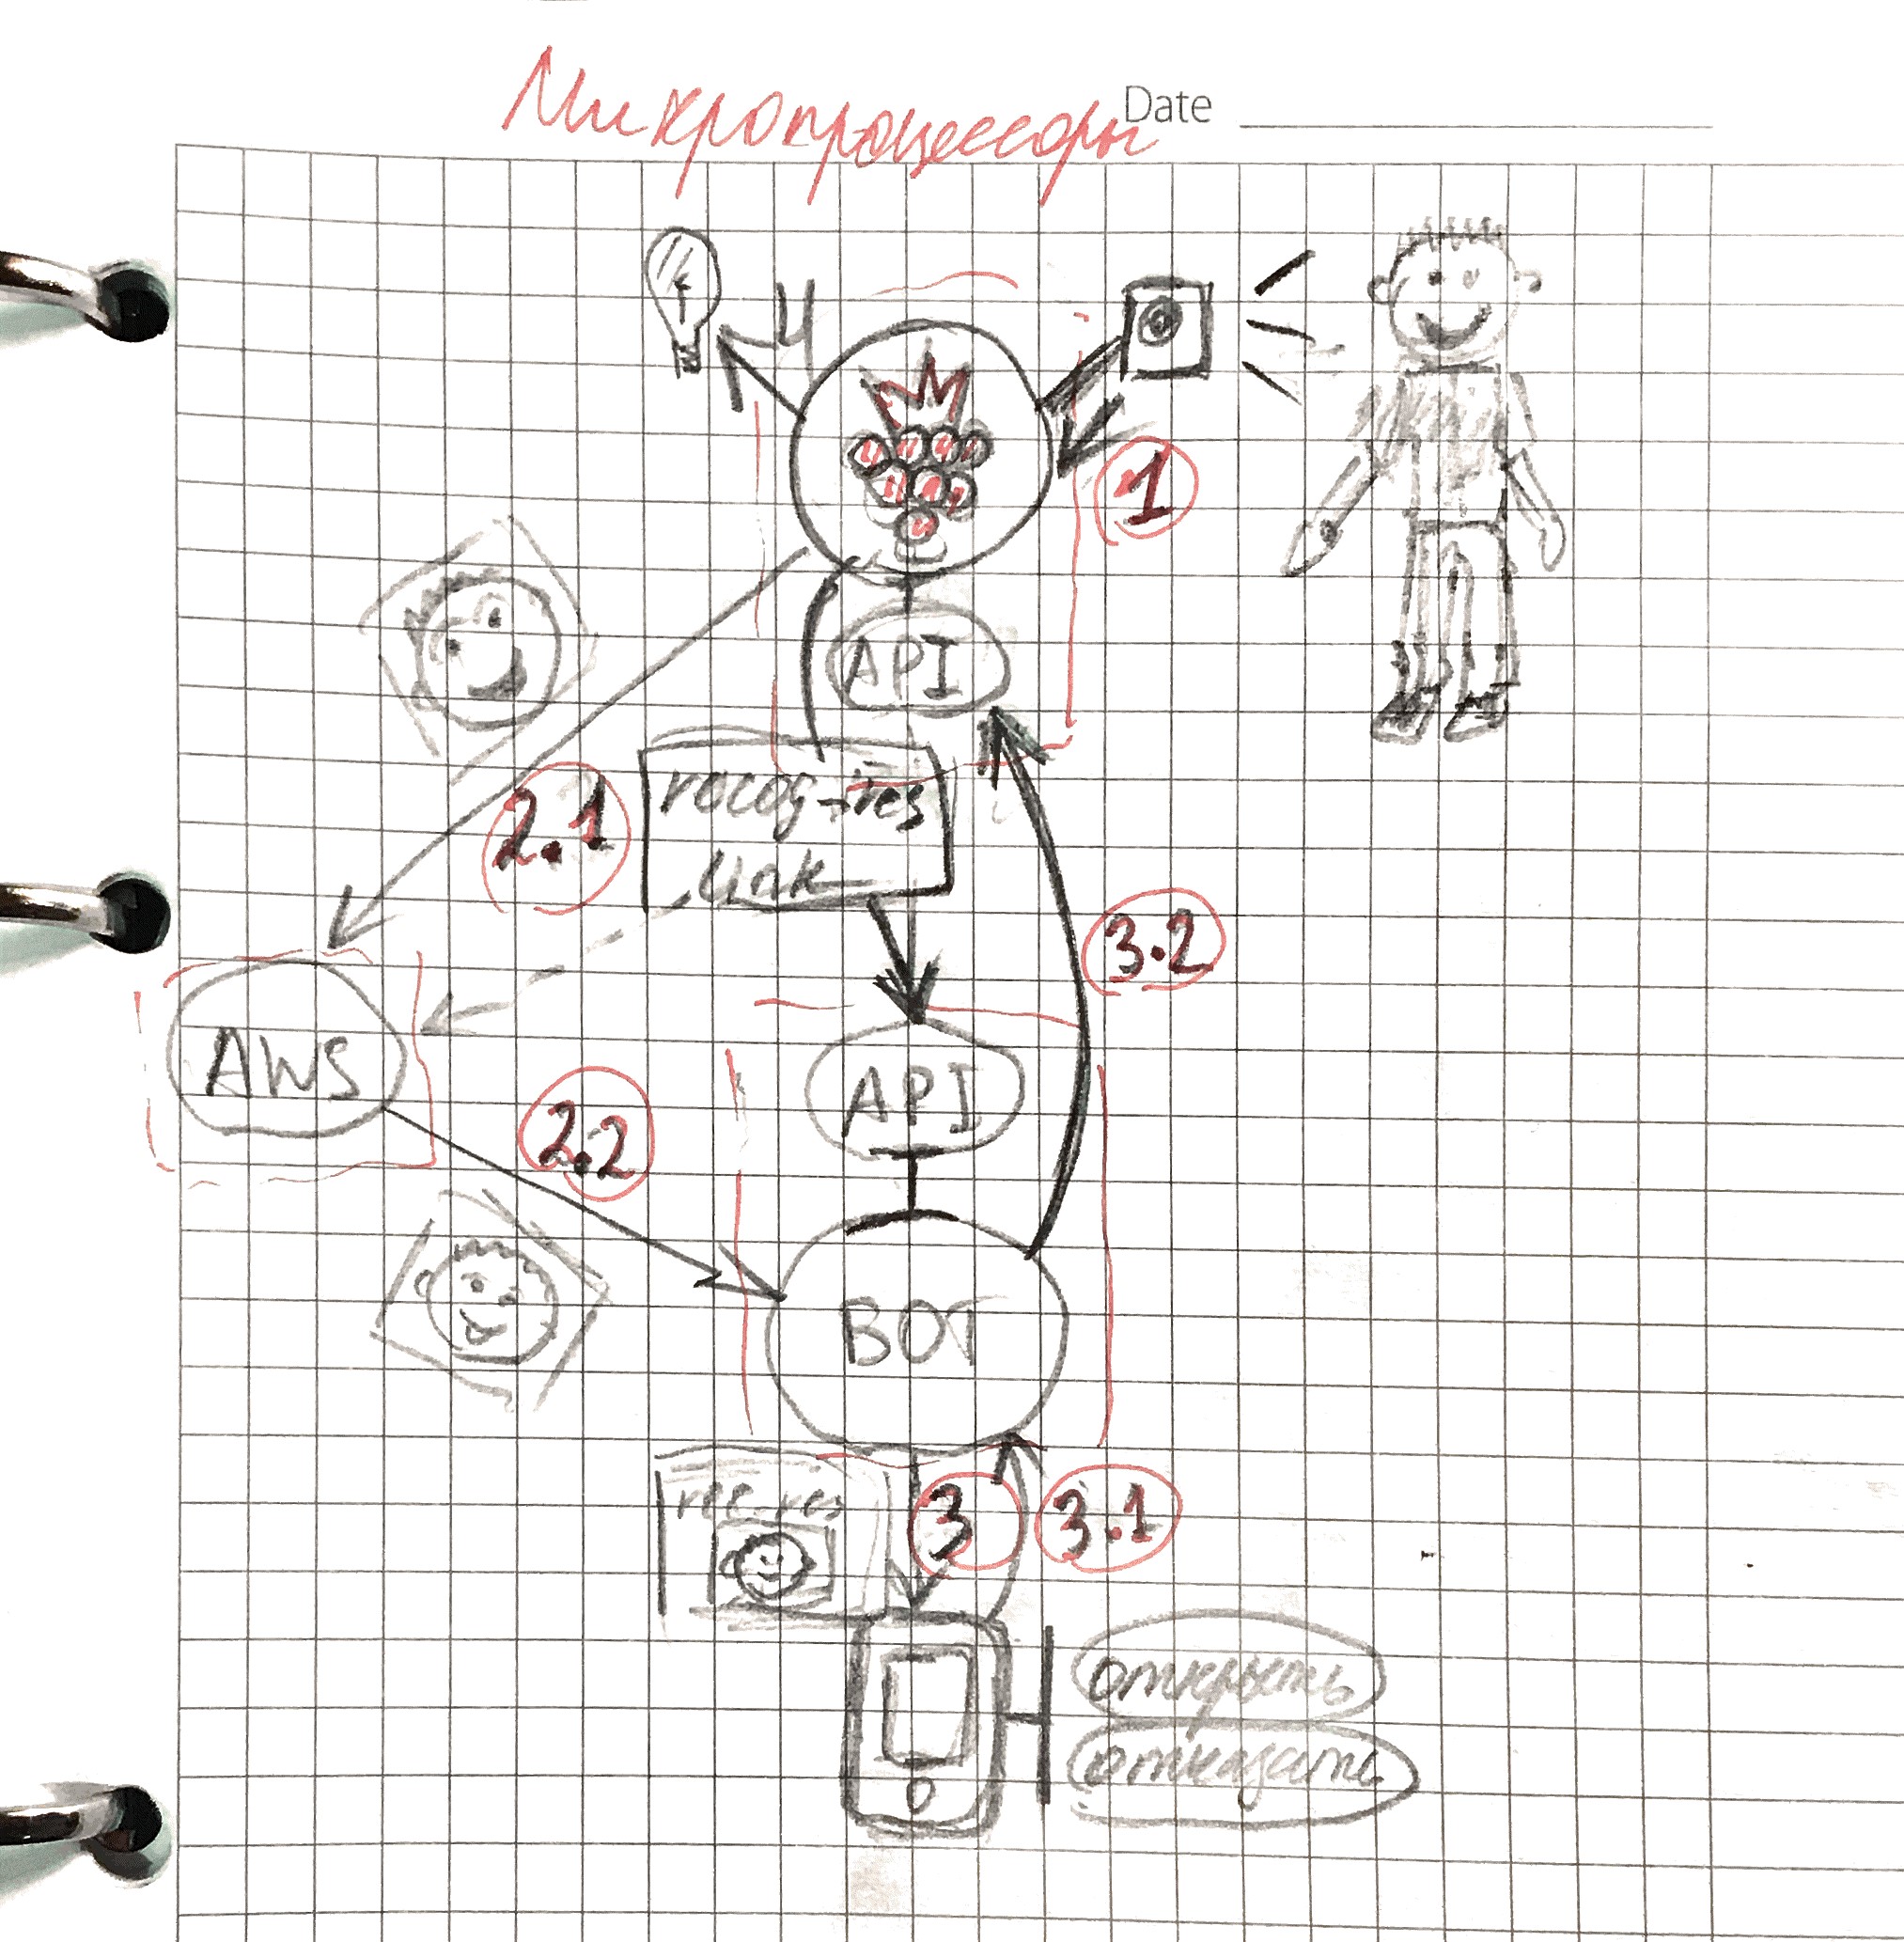 Микропроцессоры
Date
4
1
API
2.1
rocog-res
link
3.2
AWS
API
2.2
BOT
rec-res
3
3.1
открыть
отказать